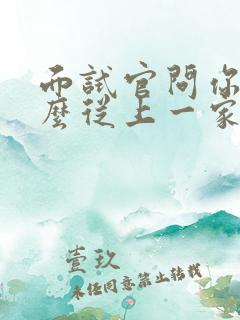 面試官問你
麼從上一家
壹玖
未经同意禁止转载